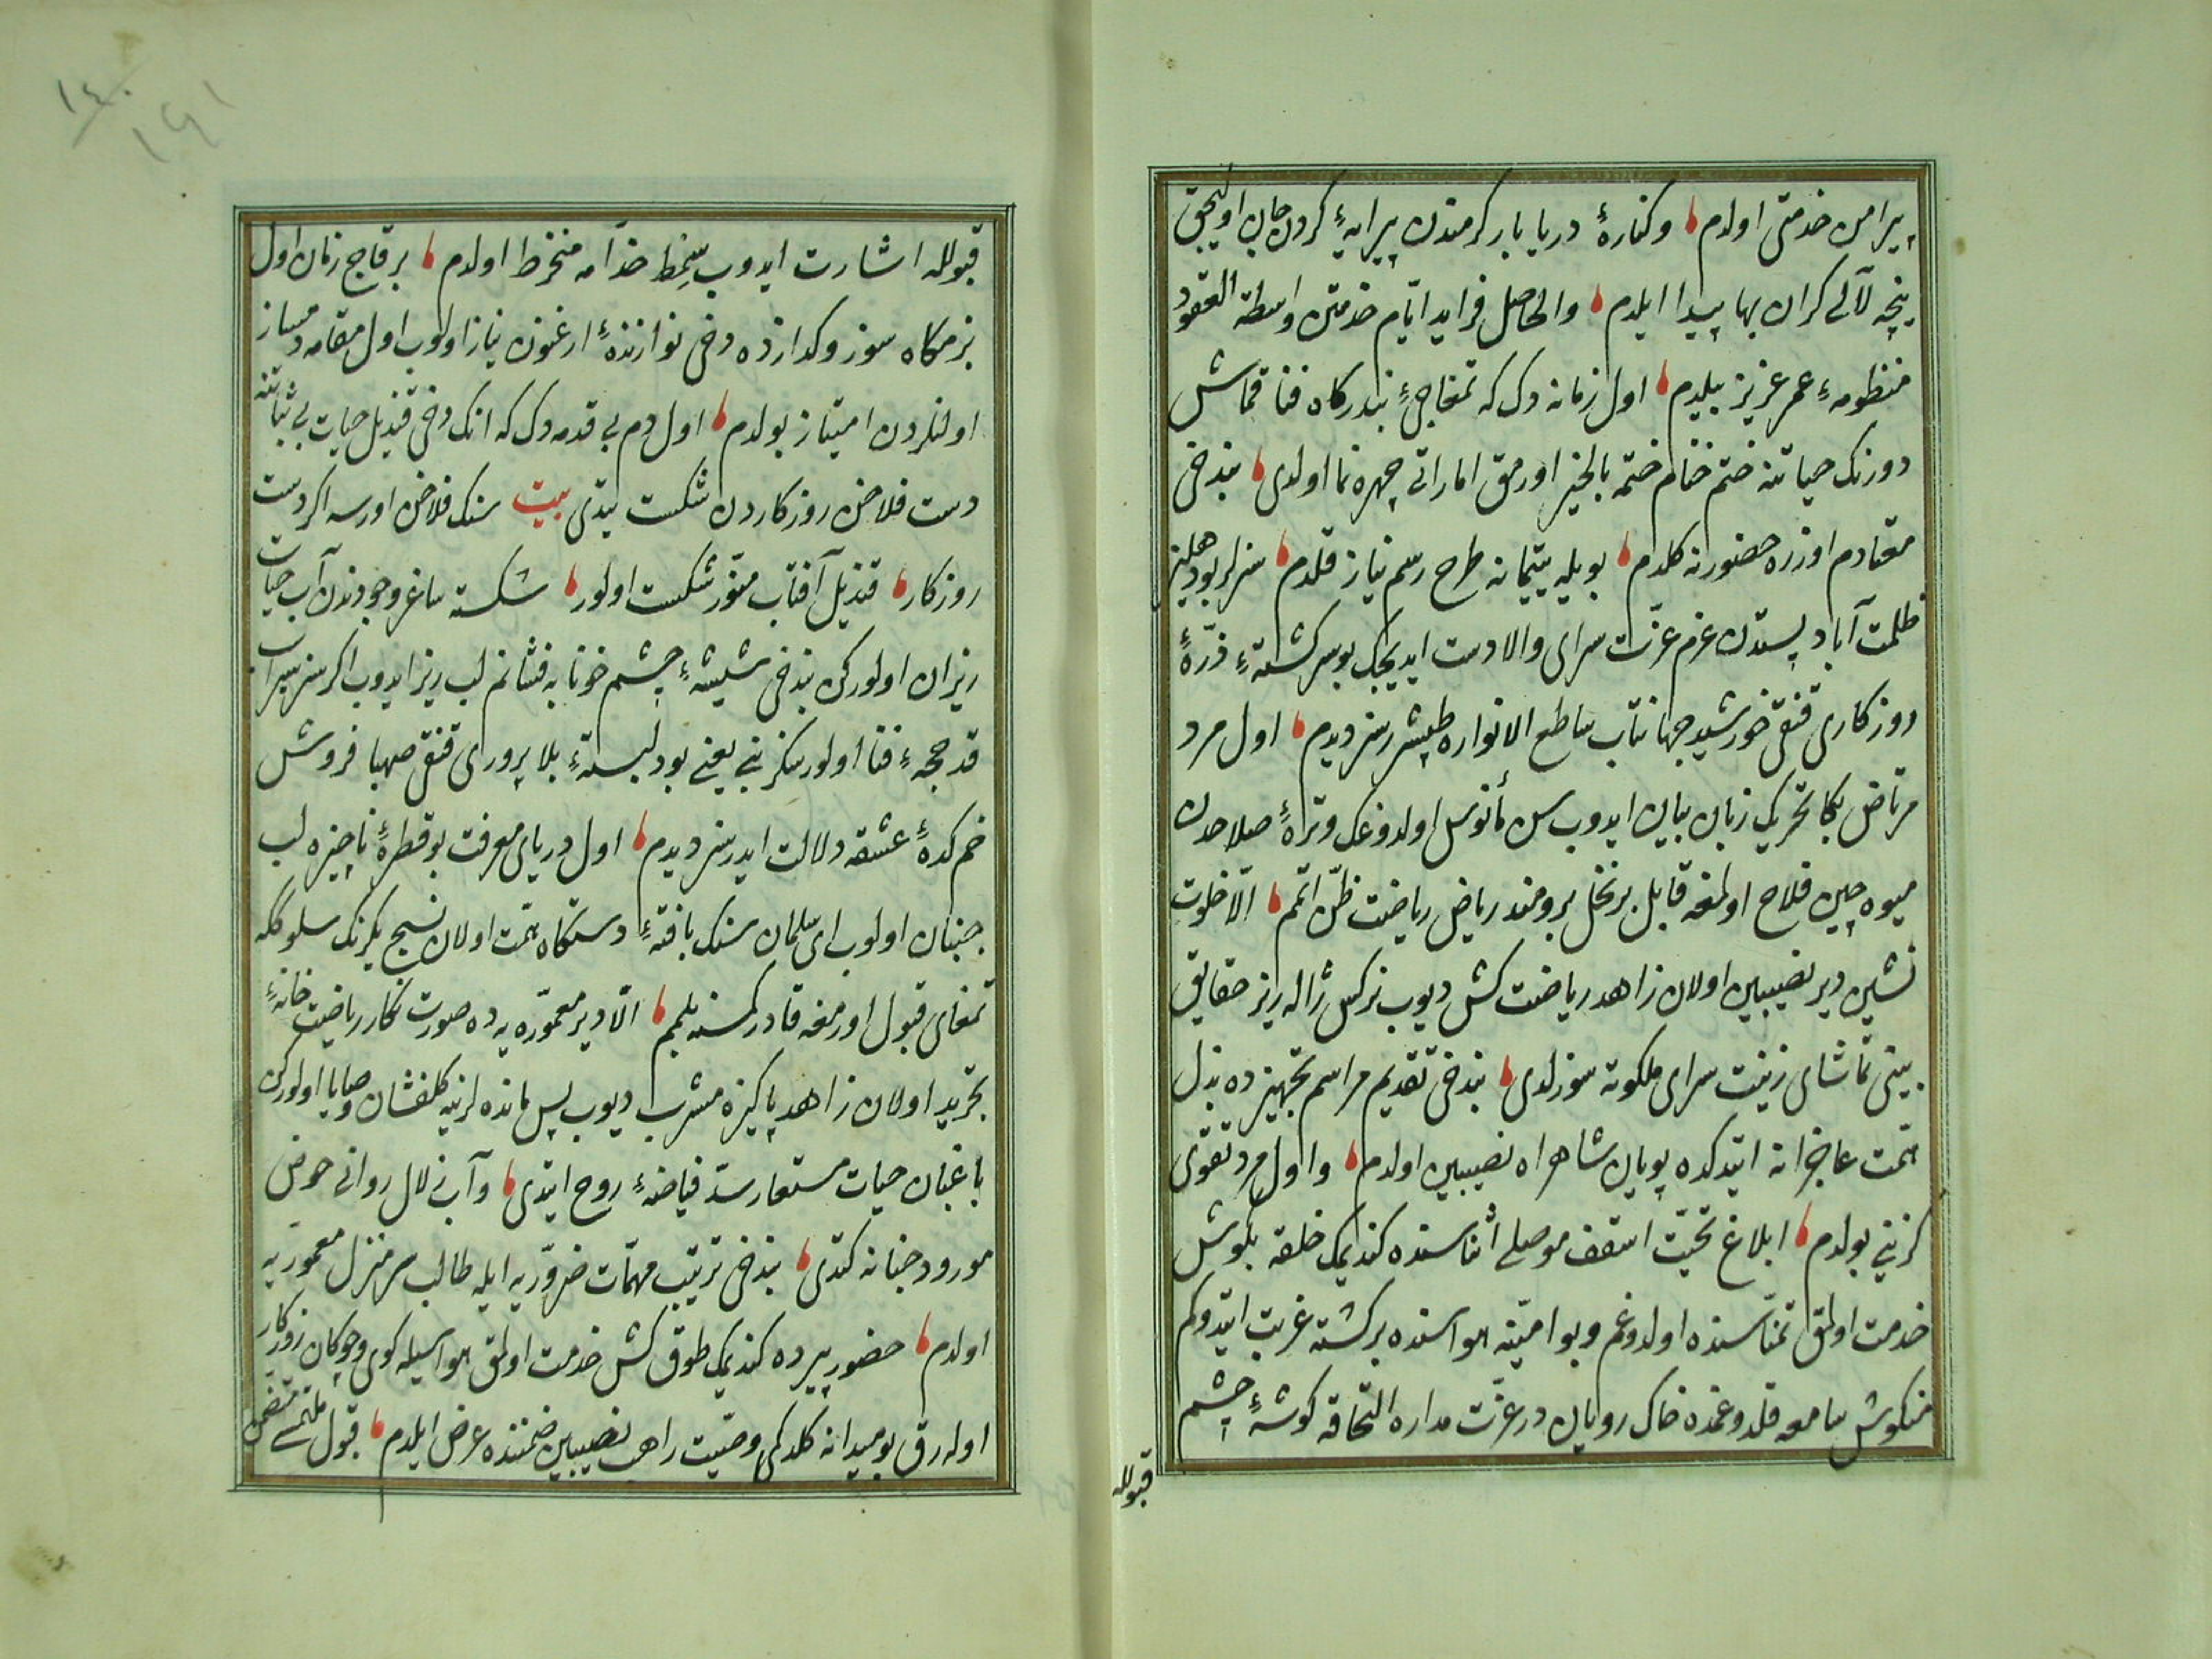 پیرامن خدمتی اولدم وکنارهٔ دریا بار کرمندن پیرایهٔ کردن جان اولیجق
نیچه لآلی کران بها پیدا ایلدم والحاصل فراید ایّام خدمتن واسطة العقود
منظومهٔ عمر عزیز بیلدم اول زمانه دک که تمغاجیٔ بندرکاه فنا قماش
دورنک حیاتنه ختم ختام ختمه بالخیر اورمق اماراتی چهره نما اولدی بندخی
معتادم اوزره حضورنه کلدم بویله یتیمانه طرح رسم نیاز قلدم سزلر بو دهلیز
ظلمت آباد پستدن عزم عزّت سرای والادست ایدیجک بو سرکشتهٔ ذرّهٔ
روزکاری قنقی خورشید جهانتاب ساطع الانواره طپشرسز دیدم اول مرد
مرتاض بکا تحریک زبان بیان ایدوب سن مأنوس اولدوغک وتراهٔ صلاحدن
میوه چین فلاح اولمغه قابل بر نخل برومند ریاض ریاضت ظنّ اتمم الّا خلوت
نشین دیر نصیبین اولان زاهد ریاضت کش دیوب نرکس ژاله ریز حقایق
بینی تماشای زینت سرای ملکوته سوزلدی بندخی تقدیم مراسم تجهیزده بذل
همّت عاجزانه ایتدکده پویان شاهراه نصیبین اولدم واول مرد تقوی
کزینی بولدم ابلاغ تحیّت اسقف موصلی أثناسنده کندیمک خلقه بکوش
خدمت اولمق تمنّاسنده اولدوغم وبو امنیّه هواسنده برکشته غربت ایتدوکم
منکوش سامعه قلدوغمده خاک رویان درعزّت مداره التحاقه کوشهٔ چشم
قبولله
١٤٠
١٤١
قبولله اشارت ایدوب سِمط خدّامه منخرط اولدم بر قاج زمان اول
بزمکاه سوز وکدازده دخی نوازندهٔ ارغنون نیاز اولوب اول مقامه دمساز
اولنلردن امتیاز بولدم اول دم بی قدمه دک که انک دخی قندیل حیات بی ثباتنه
دست فلاخن روزکاردن شکست یتدی بیت سنک فلاخن اورسه اکر دست
روزکار قندیل آفتاب منوّر شکست اولور شکسته ساغر وجودندن آب حیات
ریزان اولورکن بندخی شیشهٔ چشم خونابه فشانم لب ریز ایدوب اکر سز سیراب
قدحچهٔ فنا اولورسکز بنی یعنی بو دلبستهٔ بلا پروری قنقی صهبا فروش
خم کدهٔ عشقه دلالت ایدرسز دیدم اول دریای معرفت بو قطرهٔ ناچیزه لب
جنبان اولوب ای سلمان سنک بافتهٔ دستکاه همّت اولان نسیج یکرنک سلوککه
تمغای قبول اورمغه قادر کمسنه بلمم الّا دیر معموّره یه ده صورت نکار ریاضت خانهٔ
تجرید اولان زاهد پاکیزه مشرب دیوب پس مانده لرنیه کلفشان وصایا اولورکن
باغبان حیات مستعار سدّ فیاضهٔ روح ایتدی وآب زلال روانی حوض
مورود جنانه کتدی بندخی ترتیب مهمّات ضروّریه ایله طالب سرمنزل معموریه
اولدم حضور پیرده کندیمک طوق کش خدمت اولمق هواسیله کوی وچوکان روزکار
اوله رق بو میدانه کلدکمی وصیّت راهب نصیبین ضمننده عرض ایلدم قبول ملتمسی متضمن